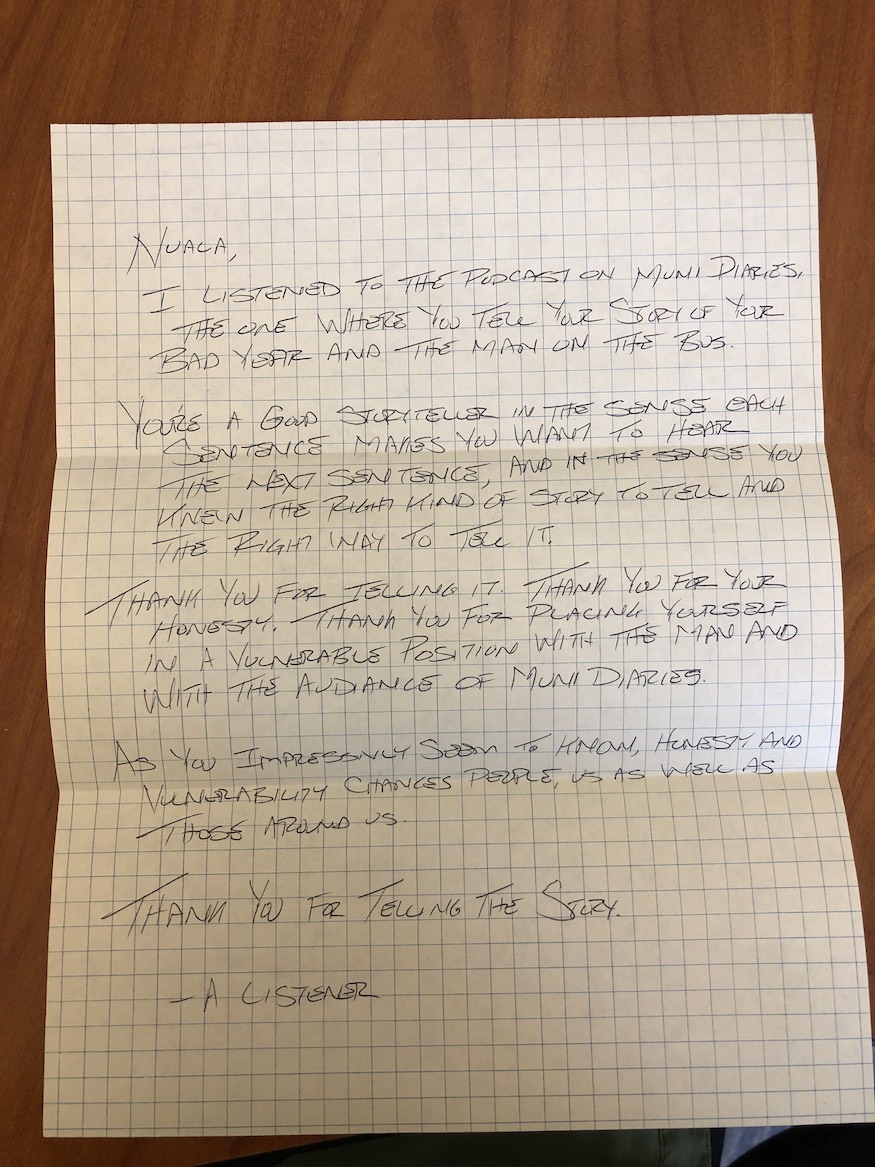 NUALA,
I LISTENED TO THE PODCAST ON MUNI DIARIES,
THE ONE WHERE YOU TELL YOUR STORY OF YOUR
BAD YEAR AND THE MAN ON THE BUS.
YOU'RE A GOOD STORYTELLER IN THE SENSE EACH
SENTENCE MAKES YOU WANT TO HEAR
THE NEXT SENTENCE, AND IN THE SENSE YOU
KNEW THE RIGHT KIND OF STORY TO TELL AND
THE RIGHT WAY TO TELL IT.
THANK YOU FOR TELLING IT. THANK YOU FOR YOUR
HONESTY. THANK YOU FOR PLACING YOURSELF
IN A VULNERABLE POSITION WITH THE MAN AND
WITH THE AUDIANCE OF MUNI DIARIES.
AS YOU IMPRESSIVLY SEEM TO KNOW, HONESTY AND
VULNERABILITY CHANGES PEOPLE, US AS WELL AS
THOSE AROUND US.
THANK YOU FOR TELLING THE STORY.
– A LISTENER